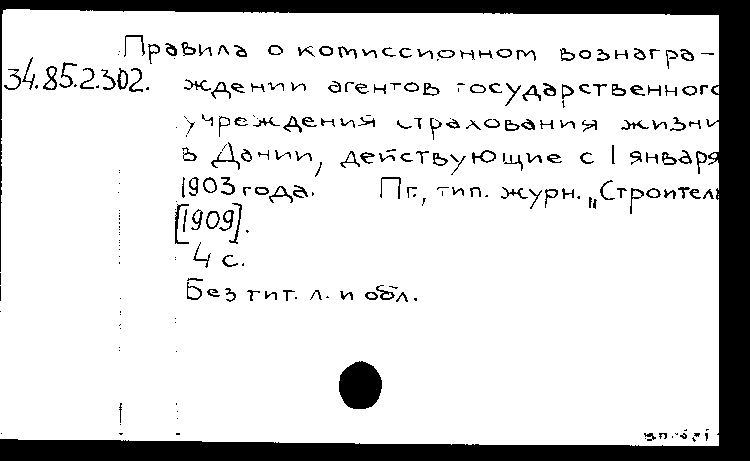 Правила о комиссионном вознагра-
34.85.2.302. ждении агентов государственного
учреждения страхования жизни
в Дании, действующие с 1 января
1903 года. Пг., тип. журн. „Строитель
[1909].
4 с.
Без тит. л. и обл.